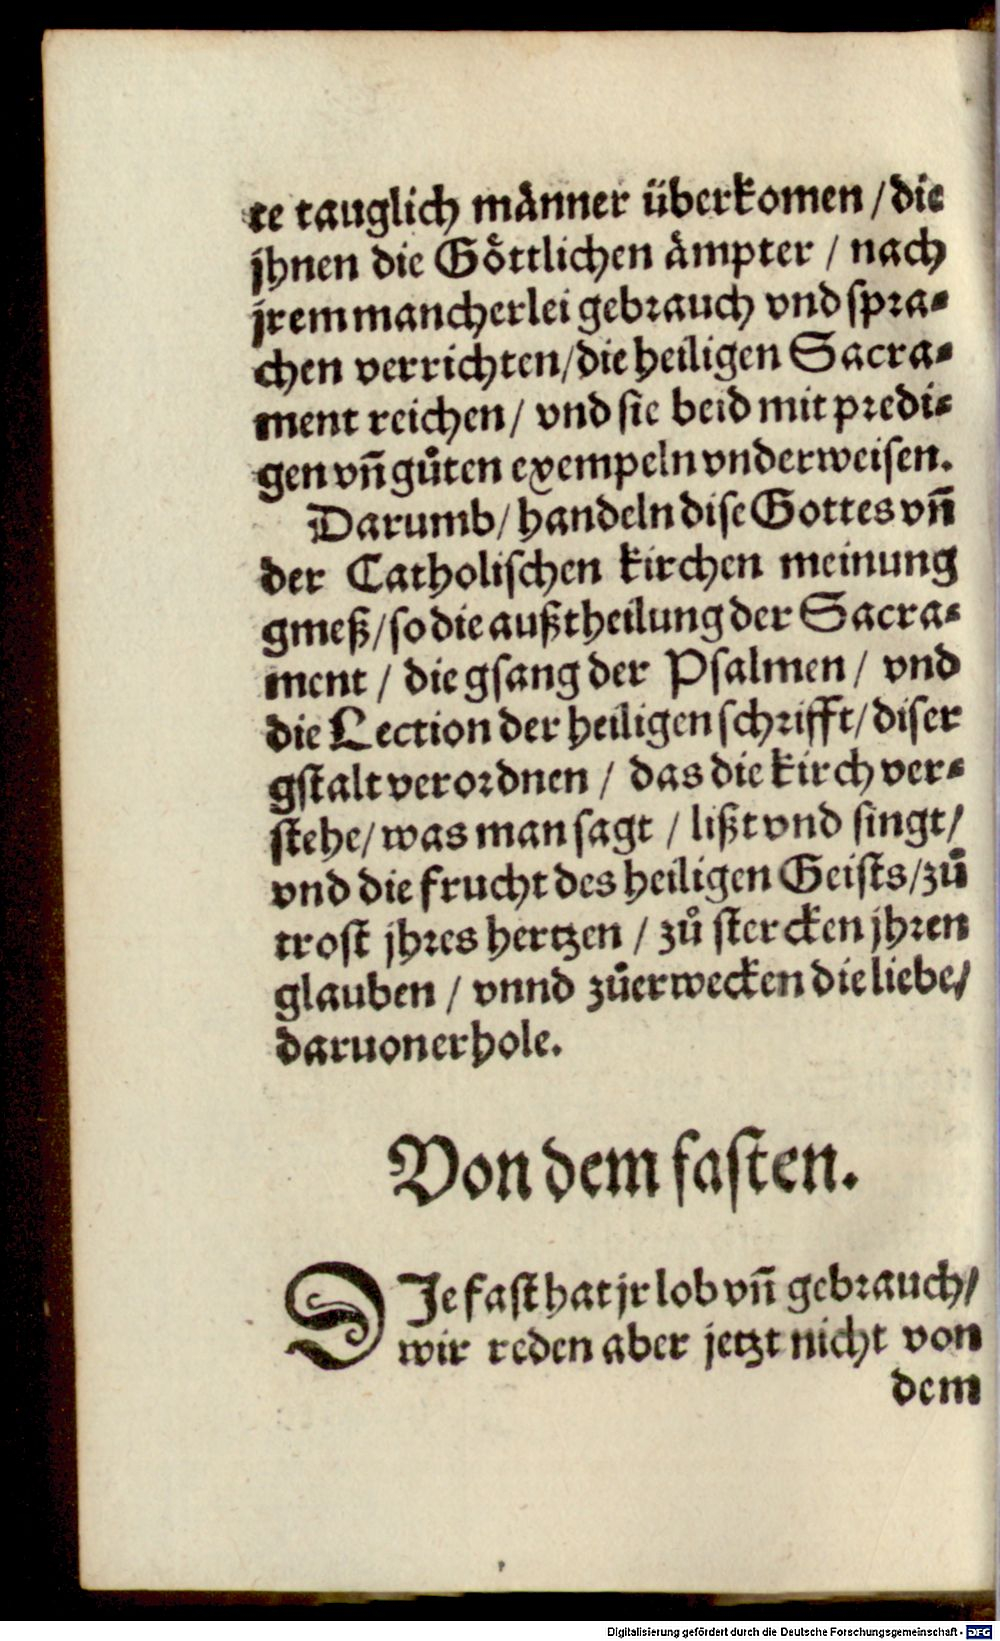 te tauglich männer überkomen / die
jhnen die Göttlichen ämpter / nach
jrem mancherlei gebrauch vnd spra⸗
chen verrichten / die heiligen Sacra⸗
ment reichen / vnd sie beid mit predi⸗
gen vñ gůten exempeln vnderweisen.
Darumb / handeln dise Gottes vñ
der Catholischen kirchen meinung
gmeß / so die außtheilung der Sacra⸗
ment / die gsang der Psalmen / vnd
die Lection der heiligen schrifft / diser
gstalt verordnen / das die kirch ver⸗
stehe / was man sagt / lißt vnd singt /
vnd die frucht des heiligen Geists / zů
trost jhres hertzen / zů stercken jhren
glauben / vnnd zůerwecken die liebe /
daruon erhole.
Von dem fasten.
DJe fast hat jr lob vñ gebrauch /
wir reden aber jetzt nicht von
dem
Digitalisierung gefördert durch die Deutsche Forschungsgemeinschaft - DFG